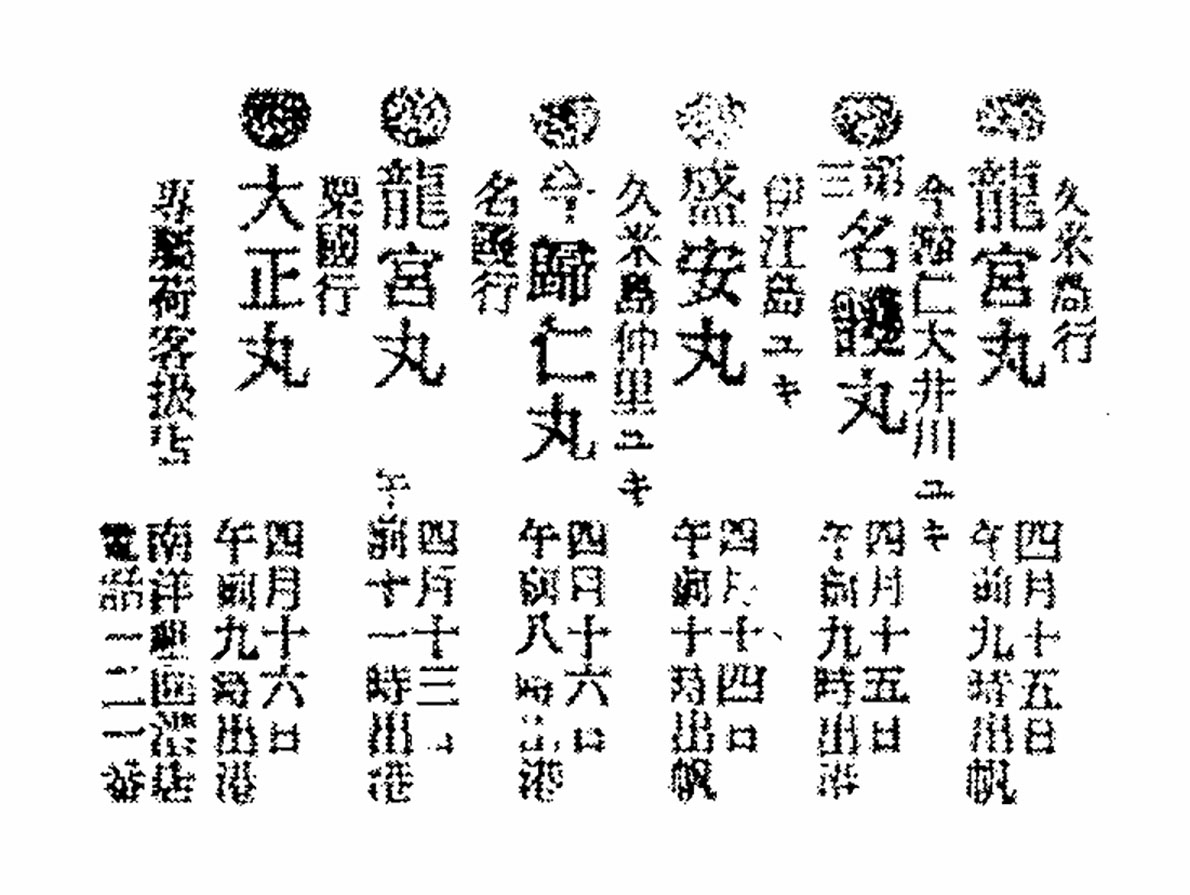 久米島行
龍宮丸
四月十五日
午前九時出帆
今歸仁大井川ユキ
名護丸
四月十五日
午前九時出港
伊江島ユキ
盛安丸
四月十四日
午前十時出帆
久米島仲里ユキ
今歸仁丸
四月十六日
午前八時出港
名護行
龍宮丸
四月十三日
午前十一時出港
粟國行
大正丸
四月十六日
午前九時出港
專屬荷客扱店
南洋
電話一二一番